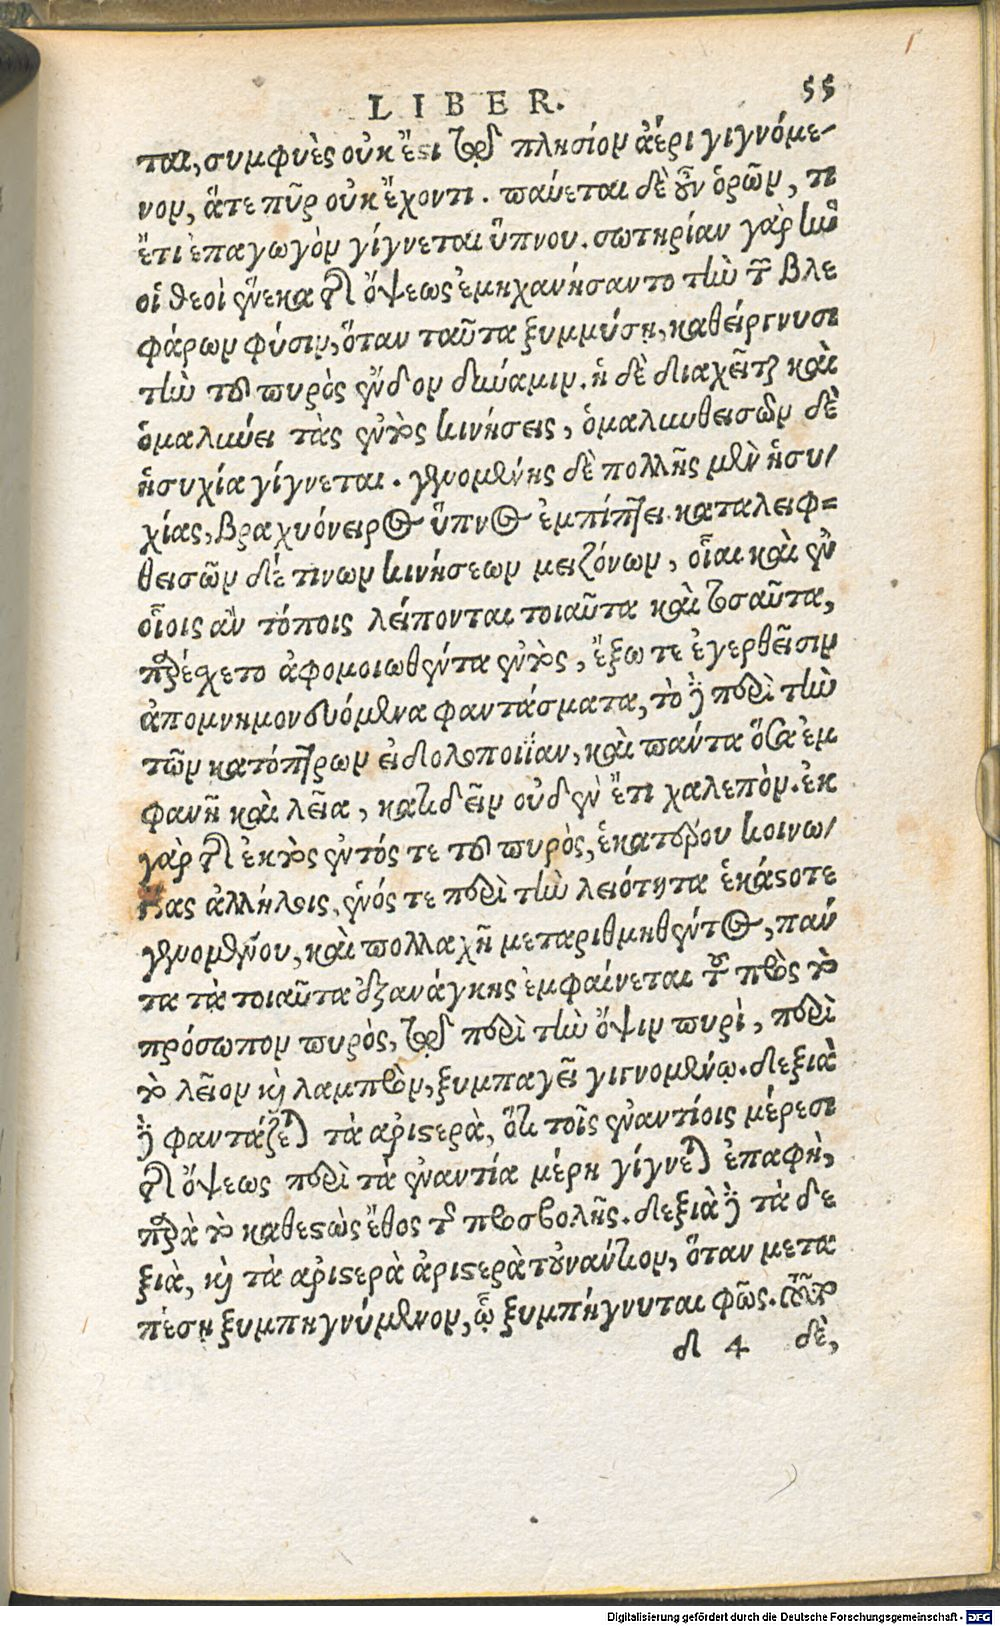 LIBER. 55
ται, συμφυὲς οὐκ ἔστι τῷ πλησίον ἀέρι γιγνόμε-
νον, ἅτε πῦρ οὐκ ἔχοντι. παύεται δὲ οὖν ὁρῶν, τι
ἔτι ἐπαγωγὸν γίγνεται ὕπνου. σωτηρίαν γὰρ ἣν
οἱ θεοὶ ἕνεκα τῆς ὄψεως ἐμηχανήσαντο τὴν τῶν βλε
φάρων φύσιν, ὅταν ταῦτα ξυμμύσῃ, καθείργνυσι
τὴν τοῦ πυρὸς ἔνδον δύναμιν. ἡ δὲ διαχεῖται καὶ
ὁμαλύνει τὰς ἐντὸς κινήσεις, ὁμαλυνθεισῶν δὲ
ἡσυχία γίγνεται. γενομένης δὲ πολλῆς μὲν ἡσυ-
χίας, βραχυόνειρος ὕπνος ἐμπίπτει. καταλειφ-
θεισῶν δέ τινων κινήσεων μειζόνων, οἷαι καὶ ἐν
οἵοις ἂν τόποις λείπονται τοιαῦτα καὶ τοσαῦτα,
παρέσχετο ἀφομοιωθέντα ἐντὸς, ἔξω τε ἐγερθεῖσιν
ἀπομνημονευόμενα φαντάσματα, τὸ δὲ περὶ τὴν
τῶν κατόπτρων εἰδολοποιΐαν, καὶ πάντα ὅσα ἐμ
φανῆ καὶ λεῖα, κατιδεῖν οὐδὲν ἔτι χαλεπὸν. ἐκ
γὰρ τῆς ἐκτὸς ἐντός τε τοῦ πυρὸς, ἑκατέρου κοινω-
νίας ἀλλήλοις, ἑνός τε περὶ τὴν λειότητα ἑκάστοτε
γενομένου, καὶ πολλαχῆ μεταριθμηθέντος, πάν
τα τὰ τοιαῦτα ἐξανάγκης ἐμφαίνεται τοῦ πρὸς τὸ
πρόσωπον πυρὸς, τῷ περὶ τὴν ὄψιν πυρὶ, περὶ
τὸ λεῖον καὶ λαμπρὸν, ξυμπαγεῖ γιγνομένῳ. δεξιὰ
δὲ φαντάζεται τὰ ἀριστερὰ, ὅτι τοῖς ἐναντίοις μέρεσι
τῆς ὄψεως περὶ τὰ ἐναντία μέρη γίγνεται ἐπαφὴ,
παρὰ τὸ καθεστὼς ἔθος τῆς προσβολῆς. δεξιὰ δὲ τὰ δε
ξιὰ, καὶ τὰ ἀριστερὰ ἀριστερὰ τοὐναντίον, ὅταν μετα
πέσῃ ξυμπηγνύμενον, ᾧ ξυμπήγνυται φῶς.
d 4 δὲ,
Digitalisierung gefördert durch die Deutsche Forschungsgemeinschaft - DFG